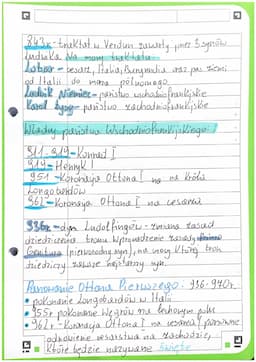 843r. - traktat w Verdun zawarty przez 3 synów
Ludwika. Na mocy traktatu:
Lotar - cesarz, Italia, Burgundia oraz pas ziemi
od Italii do morza północnego
Ludwik Niemiec - państwo wschodniofrankijskie
Karol Łysy - państwo zachodniofrankijskie
Władcy państwa Wschodniofrankijskiego
911-919 - Konrad I
919 - Henryk I
951 - Koronacja Ottona I na króla
Longobardów
962 - Koronacja Ottona I na cesarza
936r. - dyn. Ludolfingów - zmiana zasad
dziedziczenia tronu wprowadzenie zasady
(pierworodny syn), na mocy której tron
dziedziczy zawsze najstarszy syn.
Panowanie Ottona Pierwszego: 936-970r.
• pokonanie Longobardów w Italii
• 955r pokonanie Węgrów na Lechowym polu
• 962r. - Koronacja Ottona I na cesarza, ponowne
odnowienie cesarstwa na zachodzie,
które będzie nazywane święte